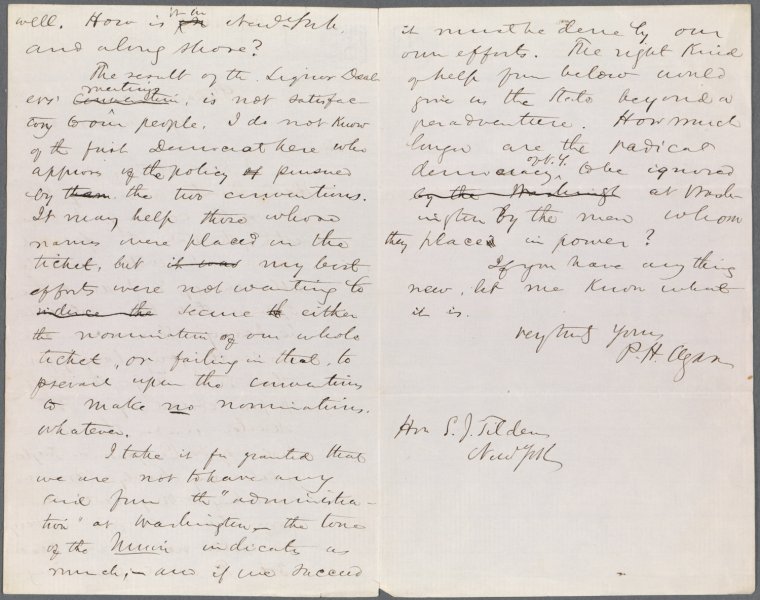 well. How is it in New York.
and along shore?
The result of the Liquor Deal-
ers' meeting convention, is not satisfac-
tory to our people. I do not know
of the first Democrat here who
approves of the policy of pursued
by them the two conventions.
It may help those whose
names were placed on the
ticket, but it was my best
efforts were not wanting to
induce the secure th either
the nomination of our whole
ticket, or failing in that, to
prevail upon the conventions
to make no nominations.
whatever.
I take it for granted that
we are not to have any
aid from the "administra-
tion" at Washington – the tone
of the Union indicates as
much; – and if we succeed
it must be done by our
own efforts. The right kind
of help from below would
give us the State beyond a
peradventure. How much
longer are the radical
democracy of N.Y. to be ignored
by the Washingt at Wash-
ington by the men whom
they placed in power?
If you have anything
new, let me know what
it is.
very truly yours
P. H. Agan
Hon S. J. Tilden
New York